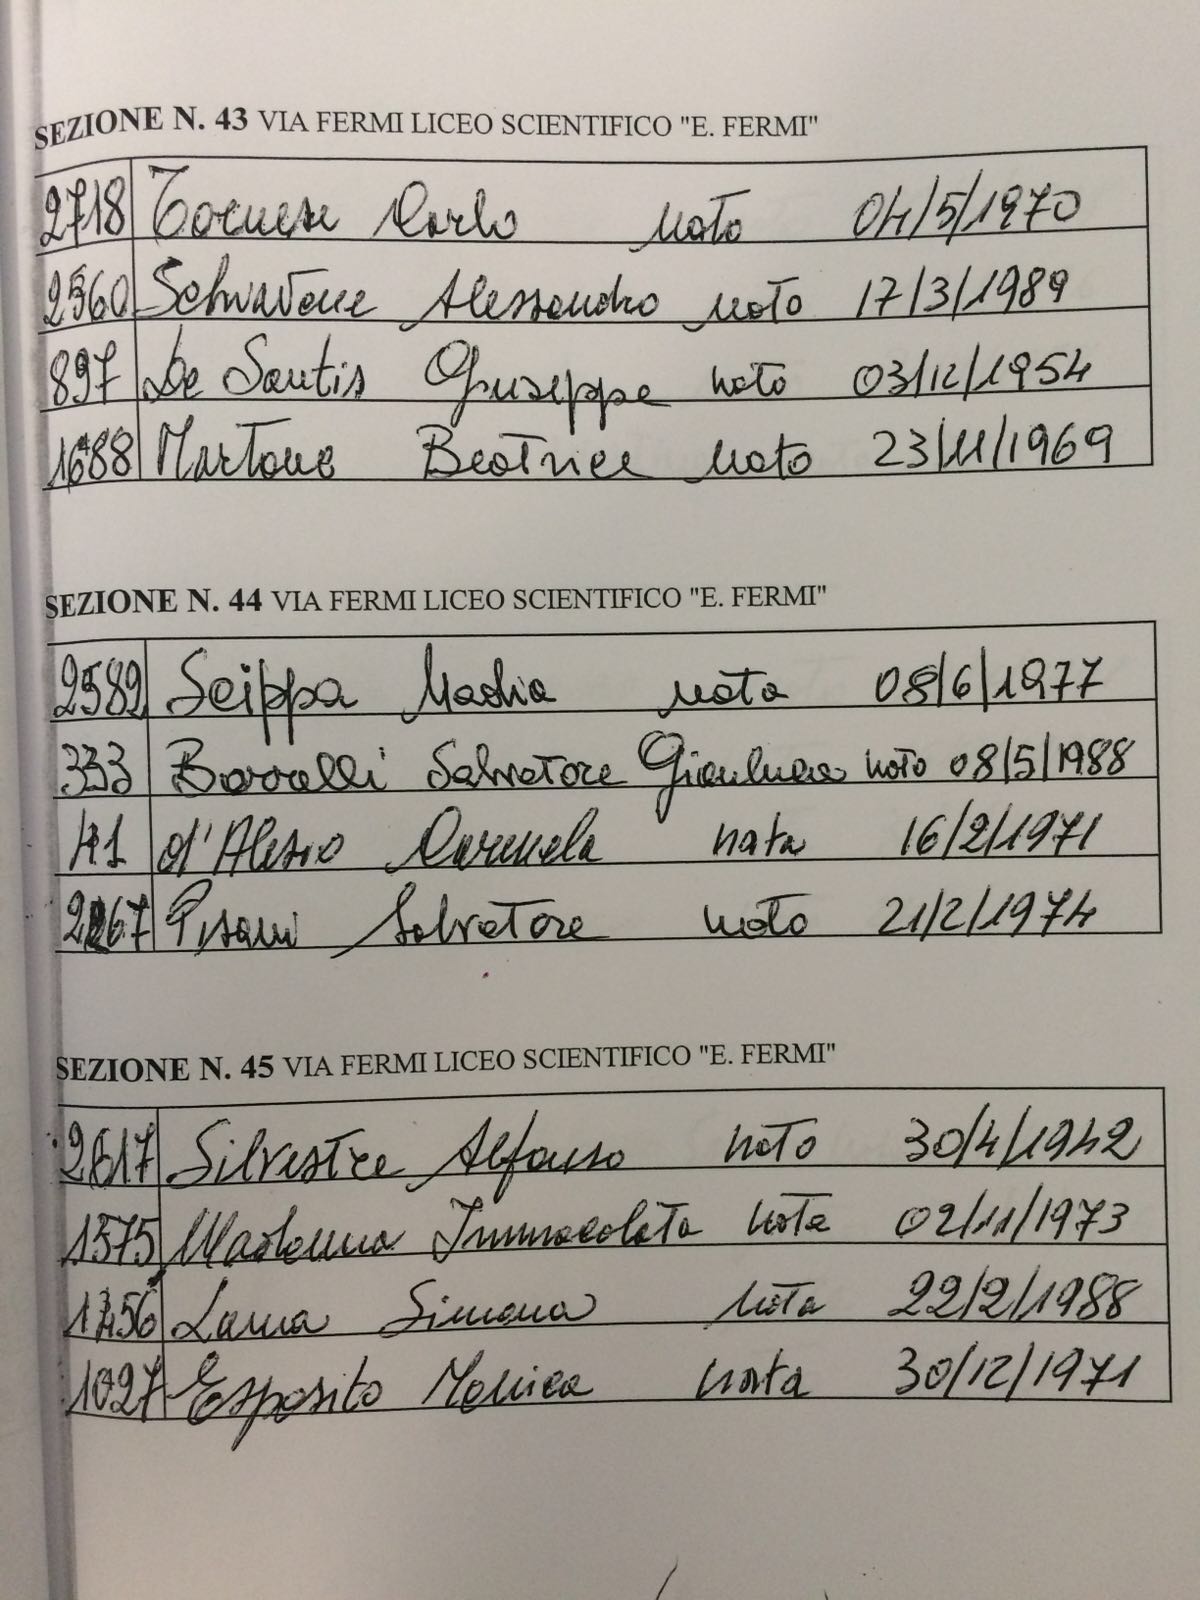 SEZIONE N. 43 VIA FERMI LICEO SCIENTIFICO "E. FERMI"
2718 Tornese Carlo nato 04/5/1970
2560 Schiavone Alessandro nato 17/3/1989
897 De Santis Giuseppe nato 03/12/1954
1688 Martone Beatrice nato 23/11/1969
SEZIONE N. 44 VIA FERMI LICEO SCIENTIFICO "E. FERMI"
2582 Scippa Nadia nata 08/6/1977
333 Borrelli Salvatore Gianluca nato 08/5/1988
d'Alesio Carmela nata 16/2/1971
Pisani Salvatore nato 21/2/1974
SEZIONE N. 45 VIA FERMI LICEO SCIENTIFICO "E. FERMI"
2617 Silvestre Alfonso nato 30/4/1942
1575 Madonna Immacolata nata 02/11/1973
Lama Simona nata 22/2/1988
1027 Esposito Monica nata 30/12/1971